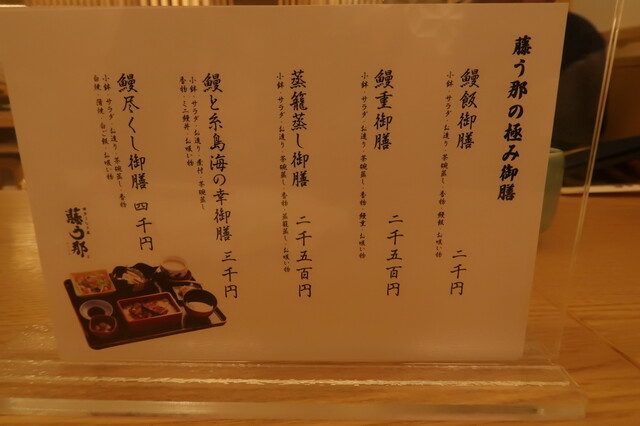 藤う那の極み御膳
鰻飯御膳 二千円
小鉢・サラダ・お造り・茶碗蒸し・香物・鰻飯・お吸い物
鰻重御膳 二千五百円
小鉢・サラダ・お造り・茶碗蒸し・香物・鰻重・お吸い物
蒸籠蒸し御膳 二千五百円
小鉢・サラダ・お造り・茶碗蒸し・香物・蒸籠蒸し・お吸い物
鰻と糸島海の幸御膳 三千円
小鉢・サラダ・お造り・煮付・茶碗蒸し
香物・ミニ鰻丼・お吸い物
鰻尽くし御膳 四千円
小鉢・サラダ・お造り・茶碗蒸し・香物
白焼・蒲焼・白ご飯・お吸い物
藤う那